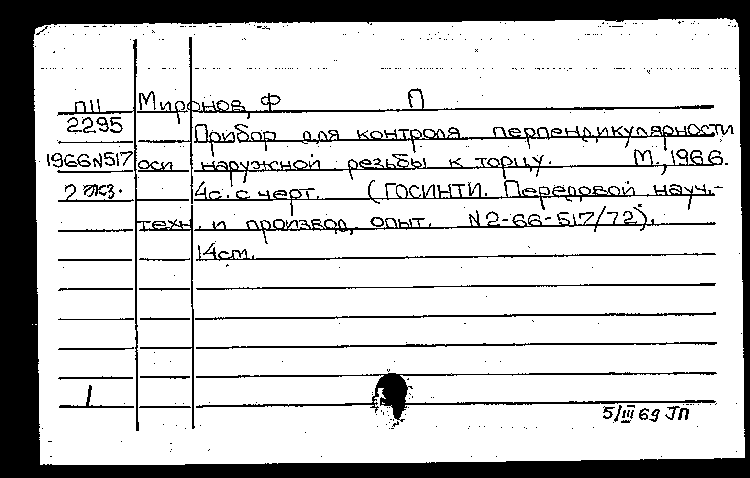 П11 Миронов, Ф П
2295 Прибор для контроля перпендикулярности
1966N517 оси наружной резьбы к торцу. М., 1966.
2 экз. 4с. с черт. (ГОСИНТИ. Передовой науч.-
техн. и производ. опыт. N2-66-517/72).
14см.
1
5/III 69 ЛП